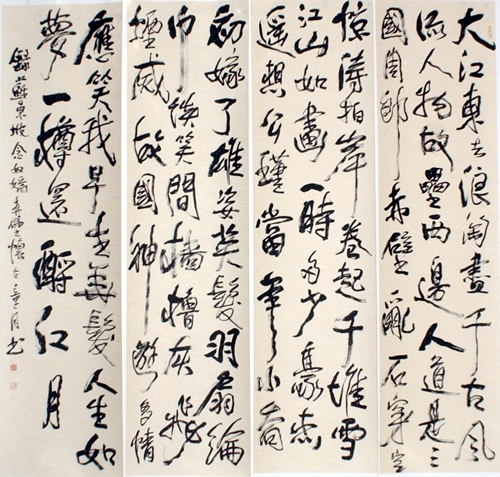 大江東去浪淘盡千古風
流人物故壘西邊人道是三
國周郎赤壁亂石穿空
惊濤拍岸卷起千堆雪
江山如畫一時多少豪杰
遥想公瑾當年小喬
初嫁了雄姿英髮羽扇綸
巾談笑間檣櫓灰飛
煙滅故國神遊多情
應笑我早生華髮人生如
夢一樽還酹江月
錄蘇東坡念奴嬌赤壁懷古月書